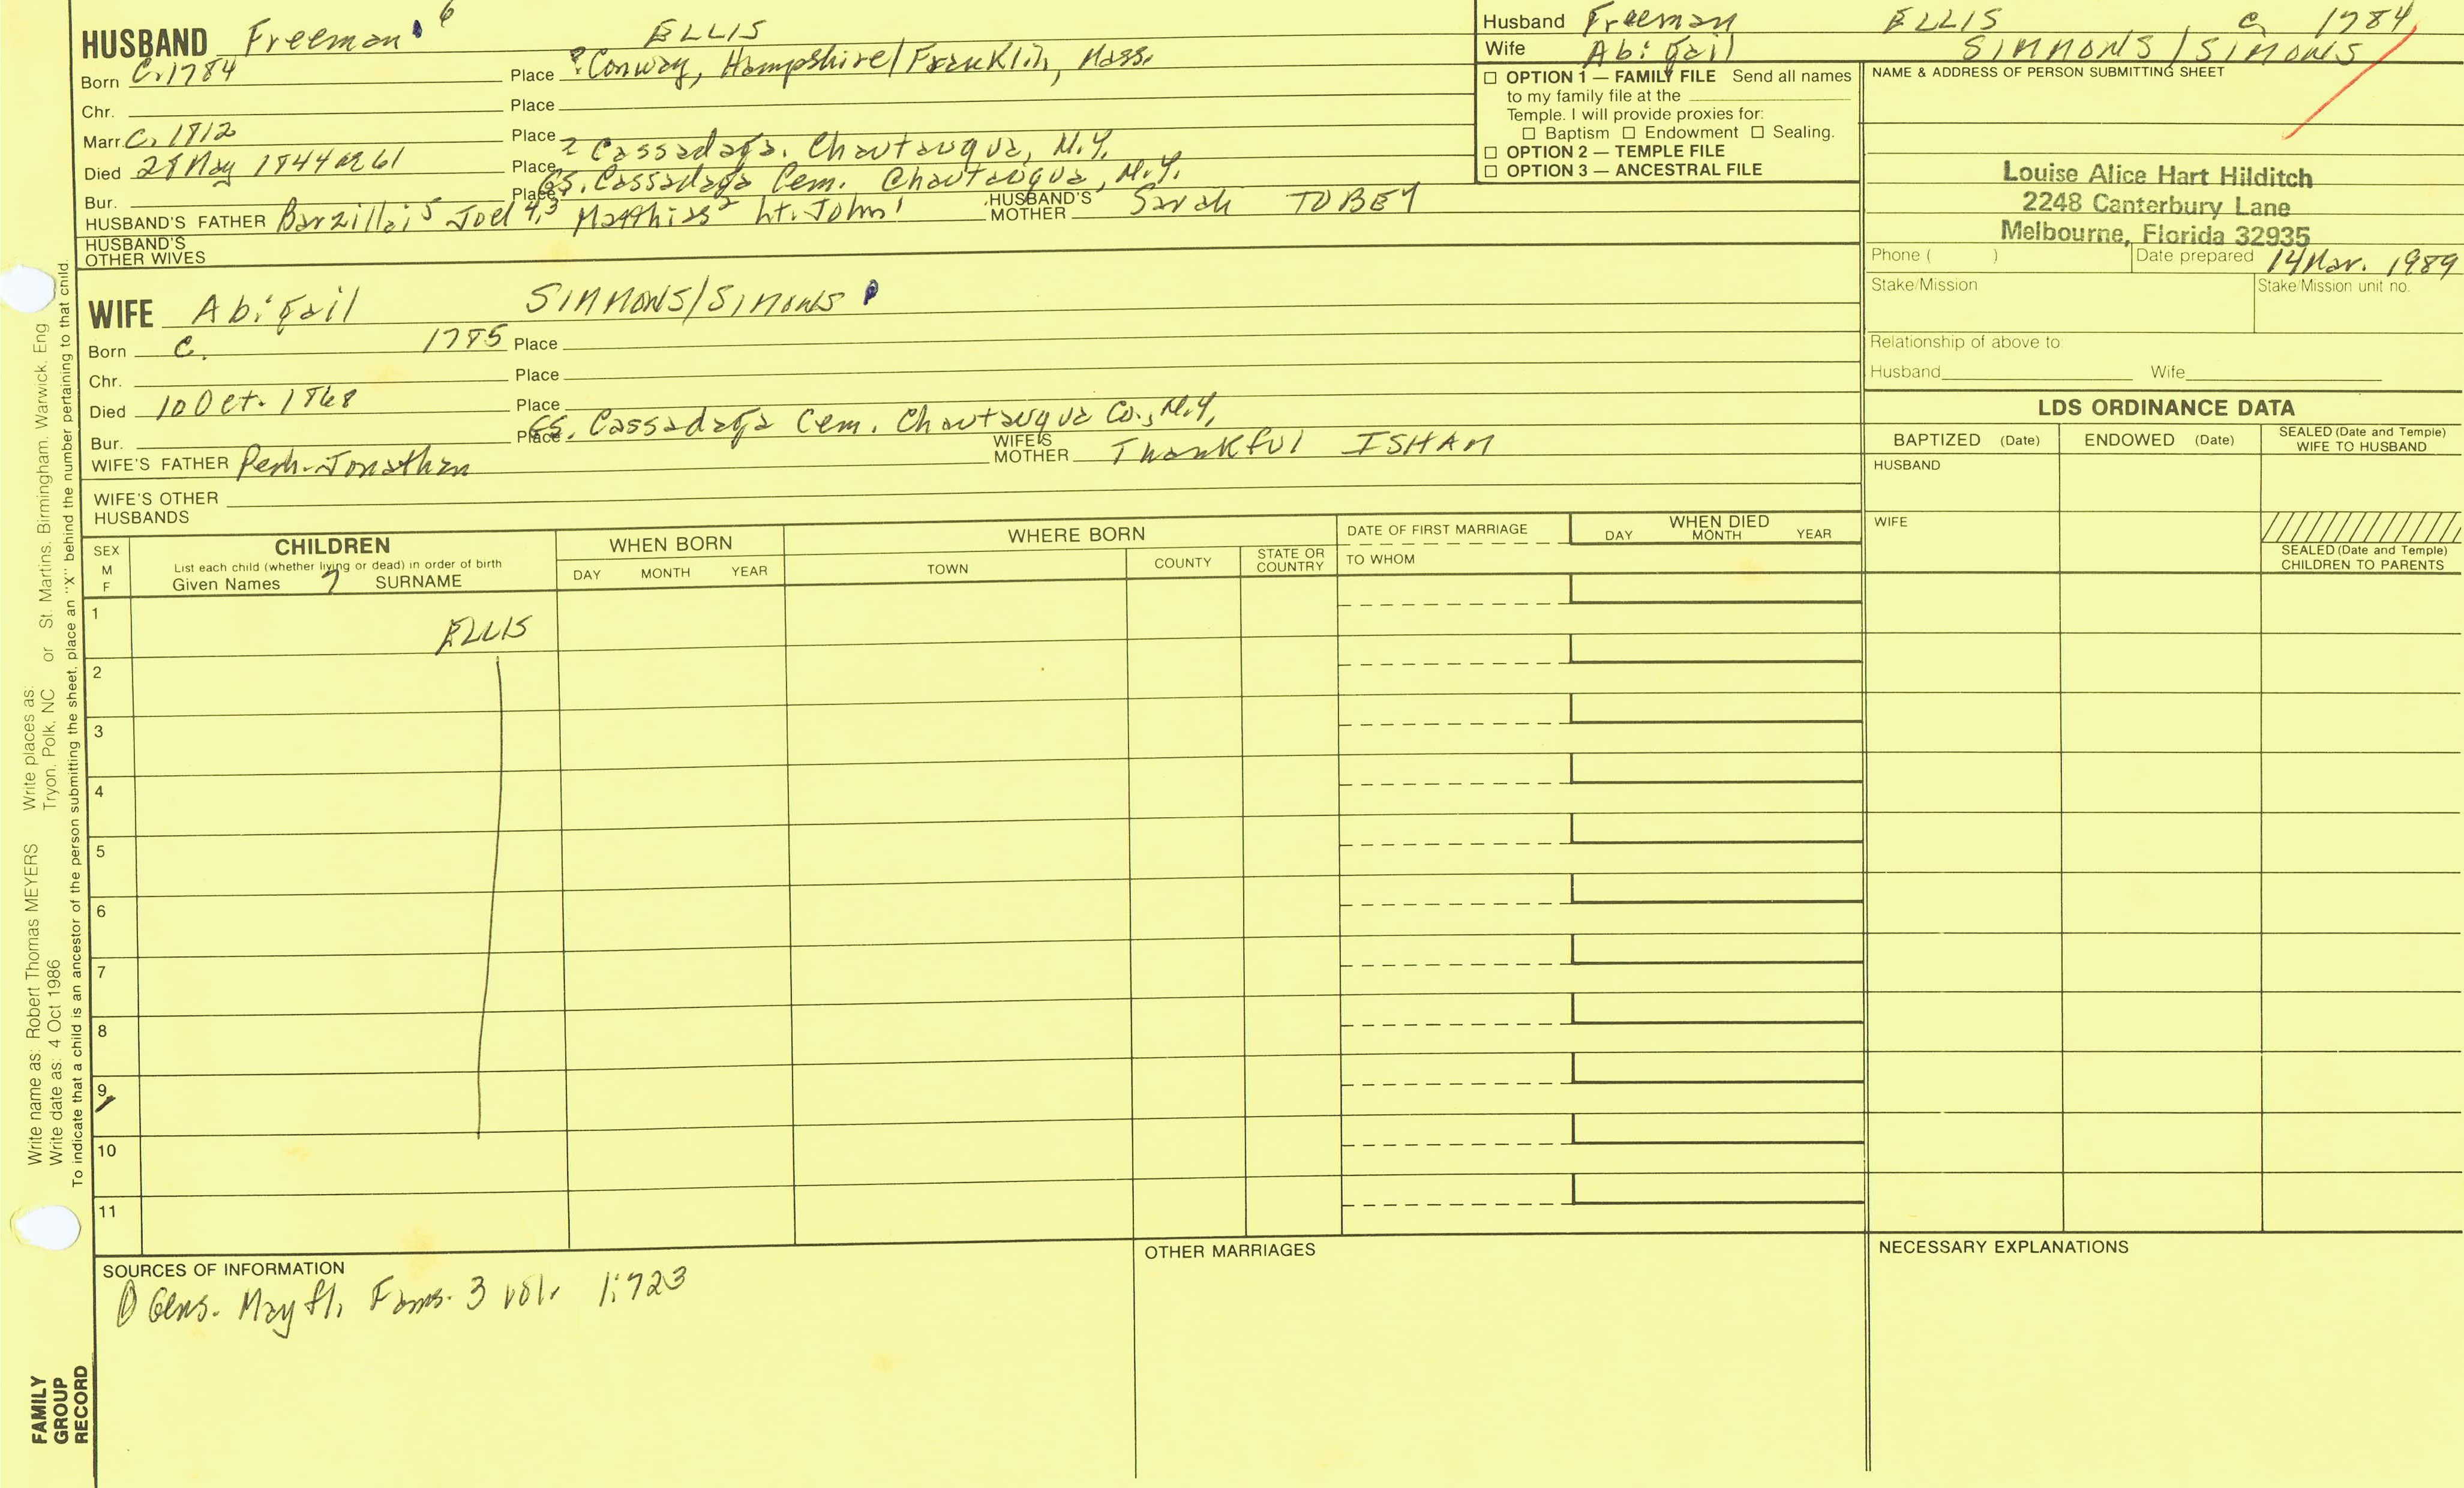 HUSBAND Freeman 6 ELLIS
Born C. 1784 Place ? Conway, Hampshire/Franklin, Mass.
Chr. Place
Marr. C. 1812 Place
Died 28 May 1844 ae 61 Place ? Cassadaga, Chautauqua, N.Y.
Bur. Place GS. Cassadaga Cem. Chautauqua, N.Y.
HUSBAND'S FATHER Barzillai 5 Joel 4,3 Matthias 2 Lt. John 1 HUSBAND'S MOTHER Sarah TOBEY
HUSBAND'S OTHER WIVES
WIFE Abigail SIMMONS/SIMONS
Born C. 1785 Place
Chr. Place
Died 10 Oct. 1868 Place
Bur. Place GS. Cassadaga Cem. Chautauqua Co., N.Y.
WIFE'S FATHER Perh. Jonathan WIFE'S MOTHER Thankful ISHAM
WIFE'S OTHER HUSBANDS
Husband Freeman ELLIS C. 1784
Wife Abigail SIMMONS/SIMONS
☐ OPTION 1 — FAMILY FILE Send all names
to my family file at the
Temple. I will provide proxies for:
☐ Baptism ☐ Endowment ☐ Sealing.
☐ OPTION 2 — TEMPLE FILE
☐ OPTION 3 — ANCESTRAL FILE
NAME & ADDRESS OF PERSON SUBMITTING SHEET
Louise Alice Hart Hilditch
2248 Canterbury Lane
Melbourne, Florida 32935
Phone ( ) Date prepared 14 Mar. 1989
Stake/Mission Stake/Mission unit no.
Relationship of above to
Husband Wife
LDS ORDINANCE DATA
BAPTIZED (Date) ENDOWED (Date) SEALED (Date and Temple) WIFE TO HUSBAND
HUSBAND
WIFE
SEALED (Date and Temple)
CHILDREN TO PARENTS
SEX M F
CHILDREN
List each child (whether living or dead) in order of birth
Given Names ? SURNAME
WHEN BORN
DAY MONTH YEAR
WHERE BORN
TOWN COUNTY STATE OR COUNTRY
DATE OF FIRST MARRIAGE
TO WHOM
WHEN DIED
DAY MONTH YEAR
1 ELLIS
2
3
4
5
6
7
8
9
10
11
SOURCES OF INFORMATION
① Gens. Mayfl. Fams. 3 vol. 1:723
OTHER MARRIAGES
NECESSARY EXPLANATIONS
Write name as: Robert Thomas MEYERS Write places as: or St. Martins, Birmingham, Warwick, Eng
Write date as: 4 Oct 1986 Tryon, Polk, NC
To indicate that a child is an ancestor of the person submitting the sheet, place an "X" behind the number pertaining to that child.
FAMILY
GROUP
RECORD